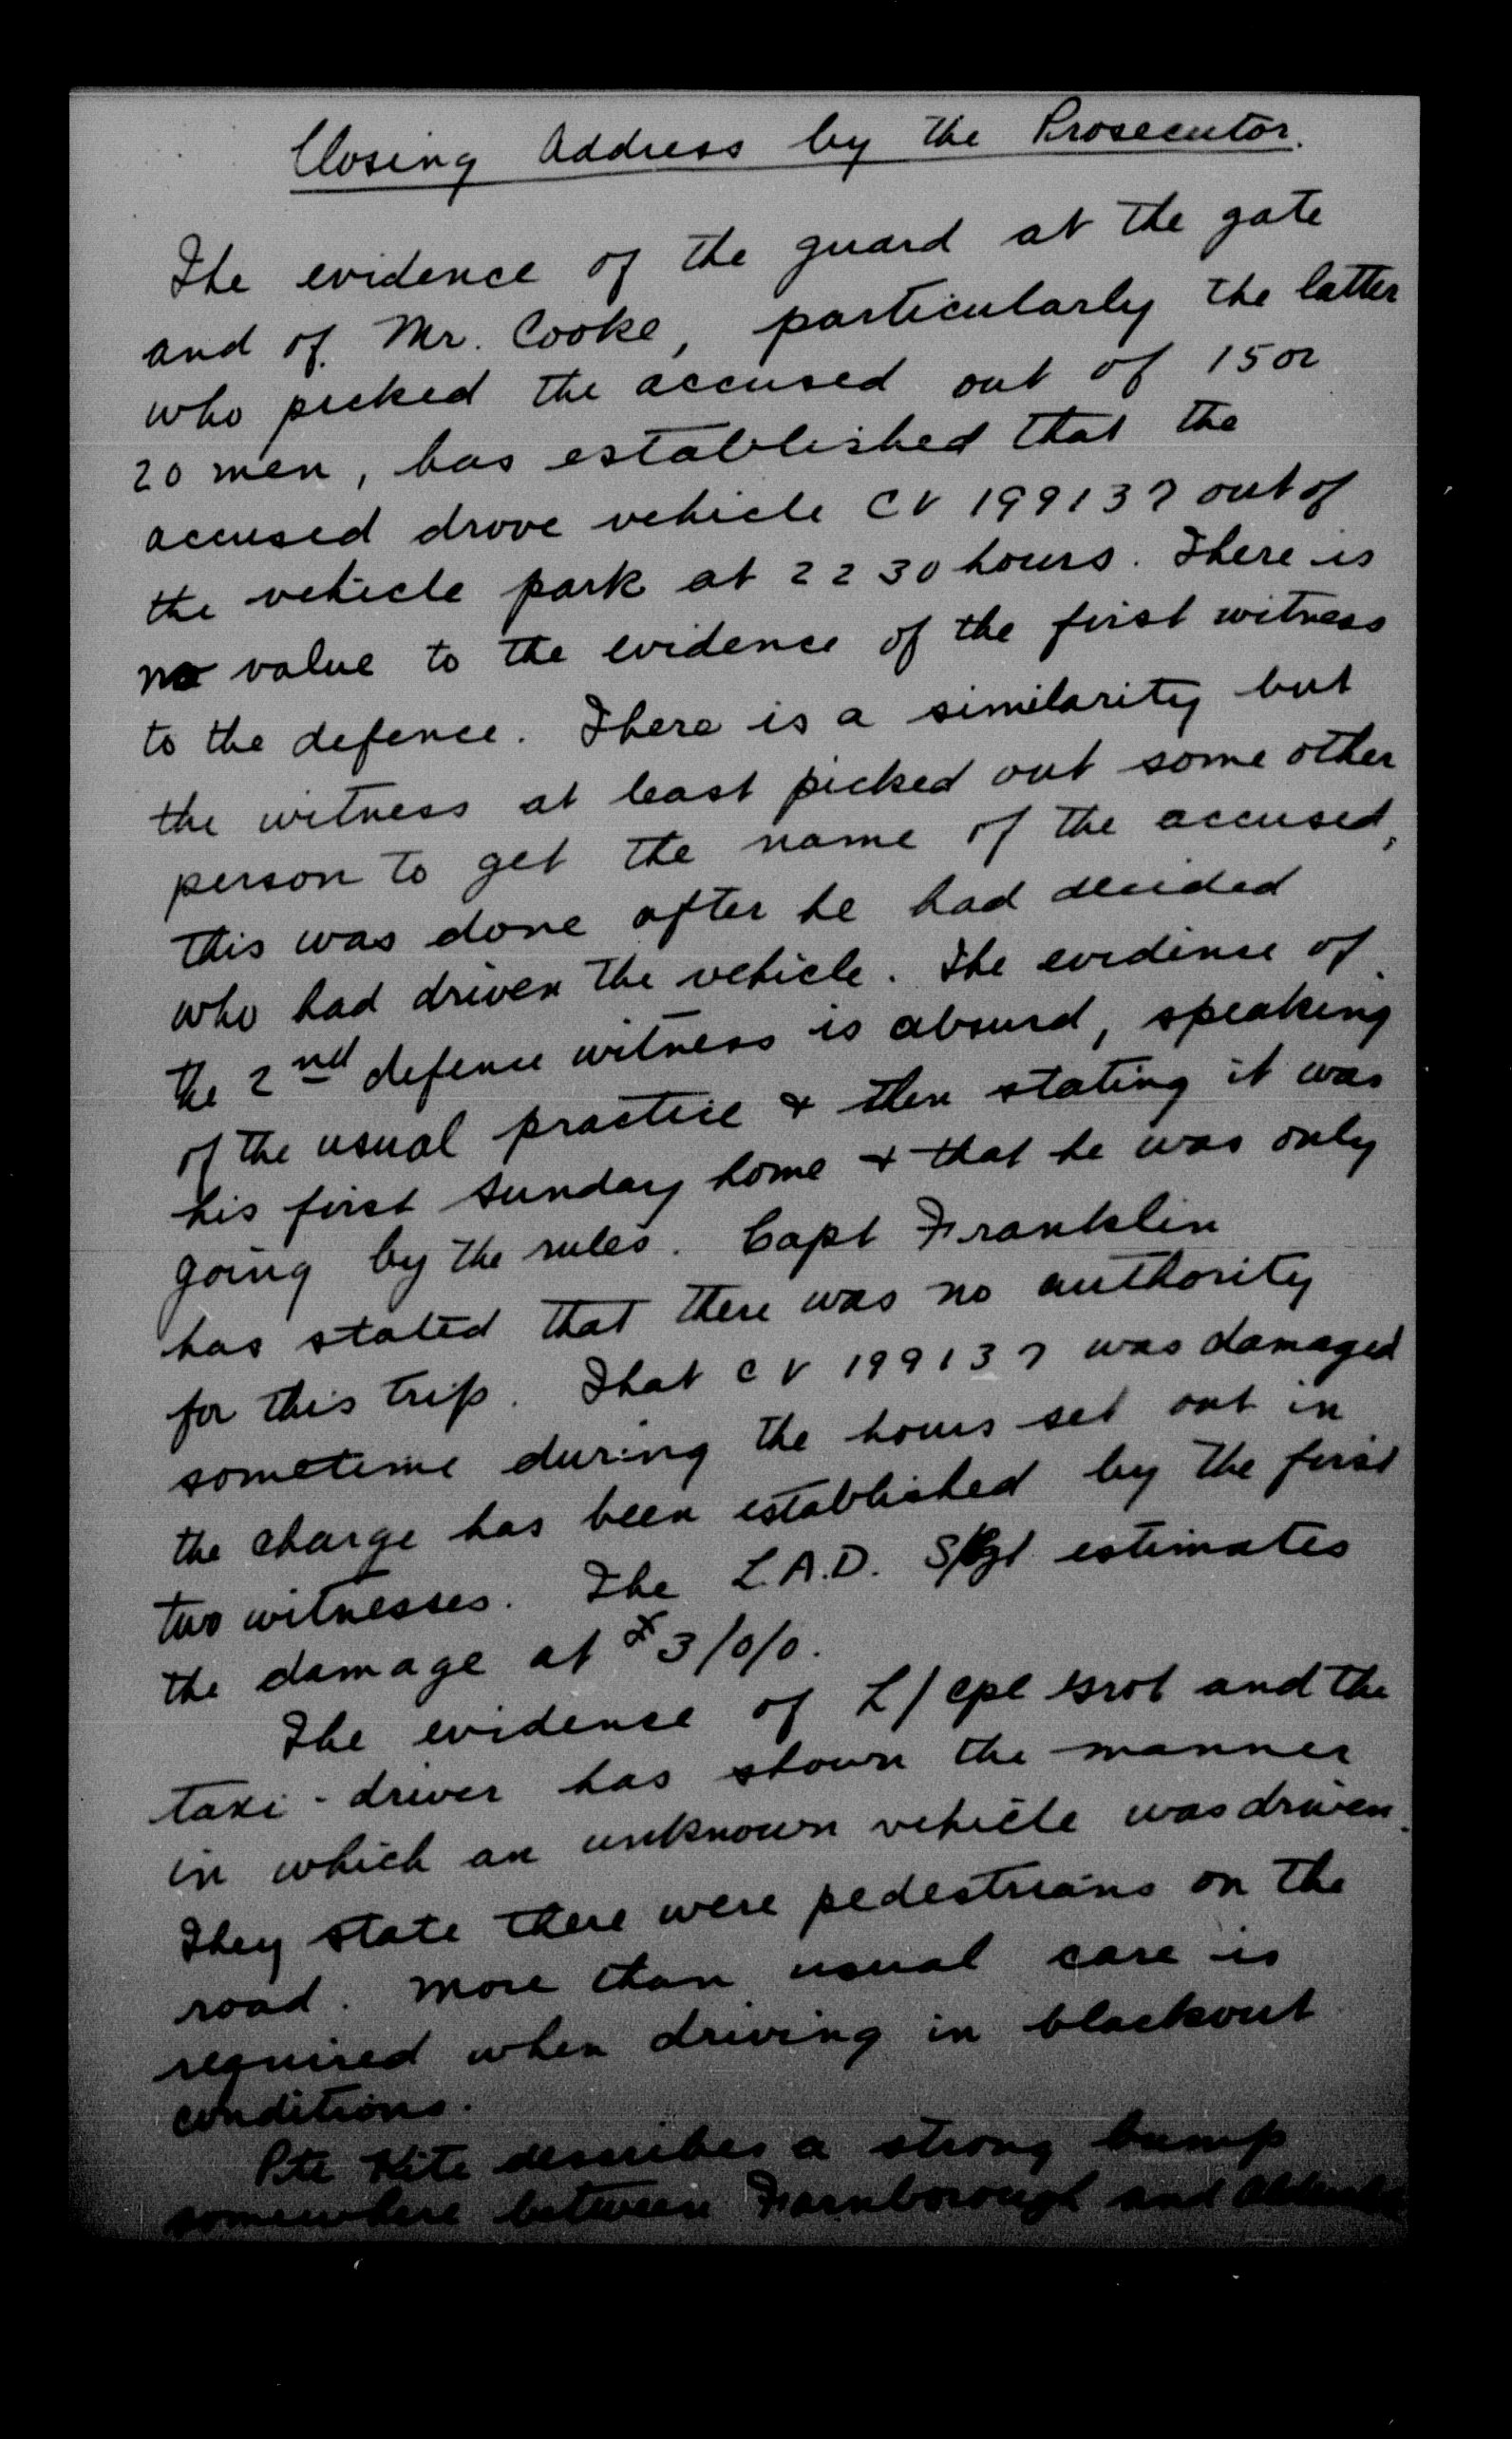 Closing Address by the Prosecutor.
The evidence of the guard at the gate
and of Mr. Cooke, particularly the latter
who picked the accused out of 15 or
20 men, has established that the
accused drove vehicle CV 199137 out of
the vehicle park at 2230 hours. There is
no value to the evidence of the first witness
to the defence. There is a similarity but
the witness at least picked out some other
person to get the name of the accused,
this was done after he had decided
who had driven the vehicle. The evidence of
the 2nd defence witness is absurd, speaking
of the usual practice & then stating it was
his first Sunday home & that he was only
going by the rules. Capt Franklin
has stated that there was no authority
for this trip. That CV 199137 was damaged
sometime during the hours set out in
the charge has been established by the first
two witnesses. The L.A.D. S/Sgt estimates
the damage at £3/0/0.
The evidence of L/Cpl and the
taxi-driver has shown the manner
in which an unknown vehicle was driven.
They state there were pedestrians on the
road. More than usual care is
required when driving in blackout
conditions.
Pte Kite describes a strong bump
somewhere between Farnborough and